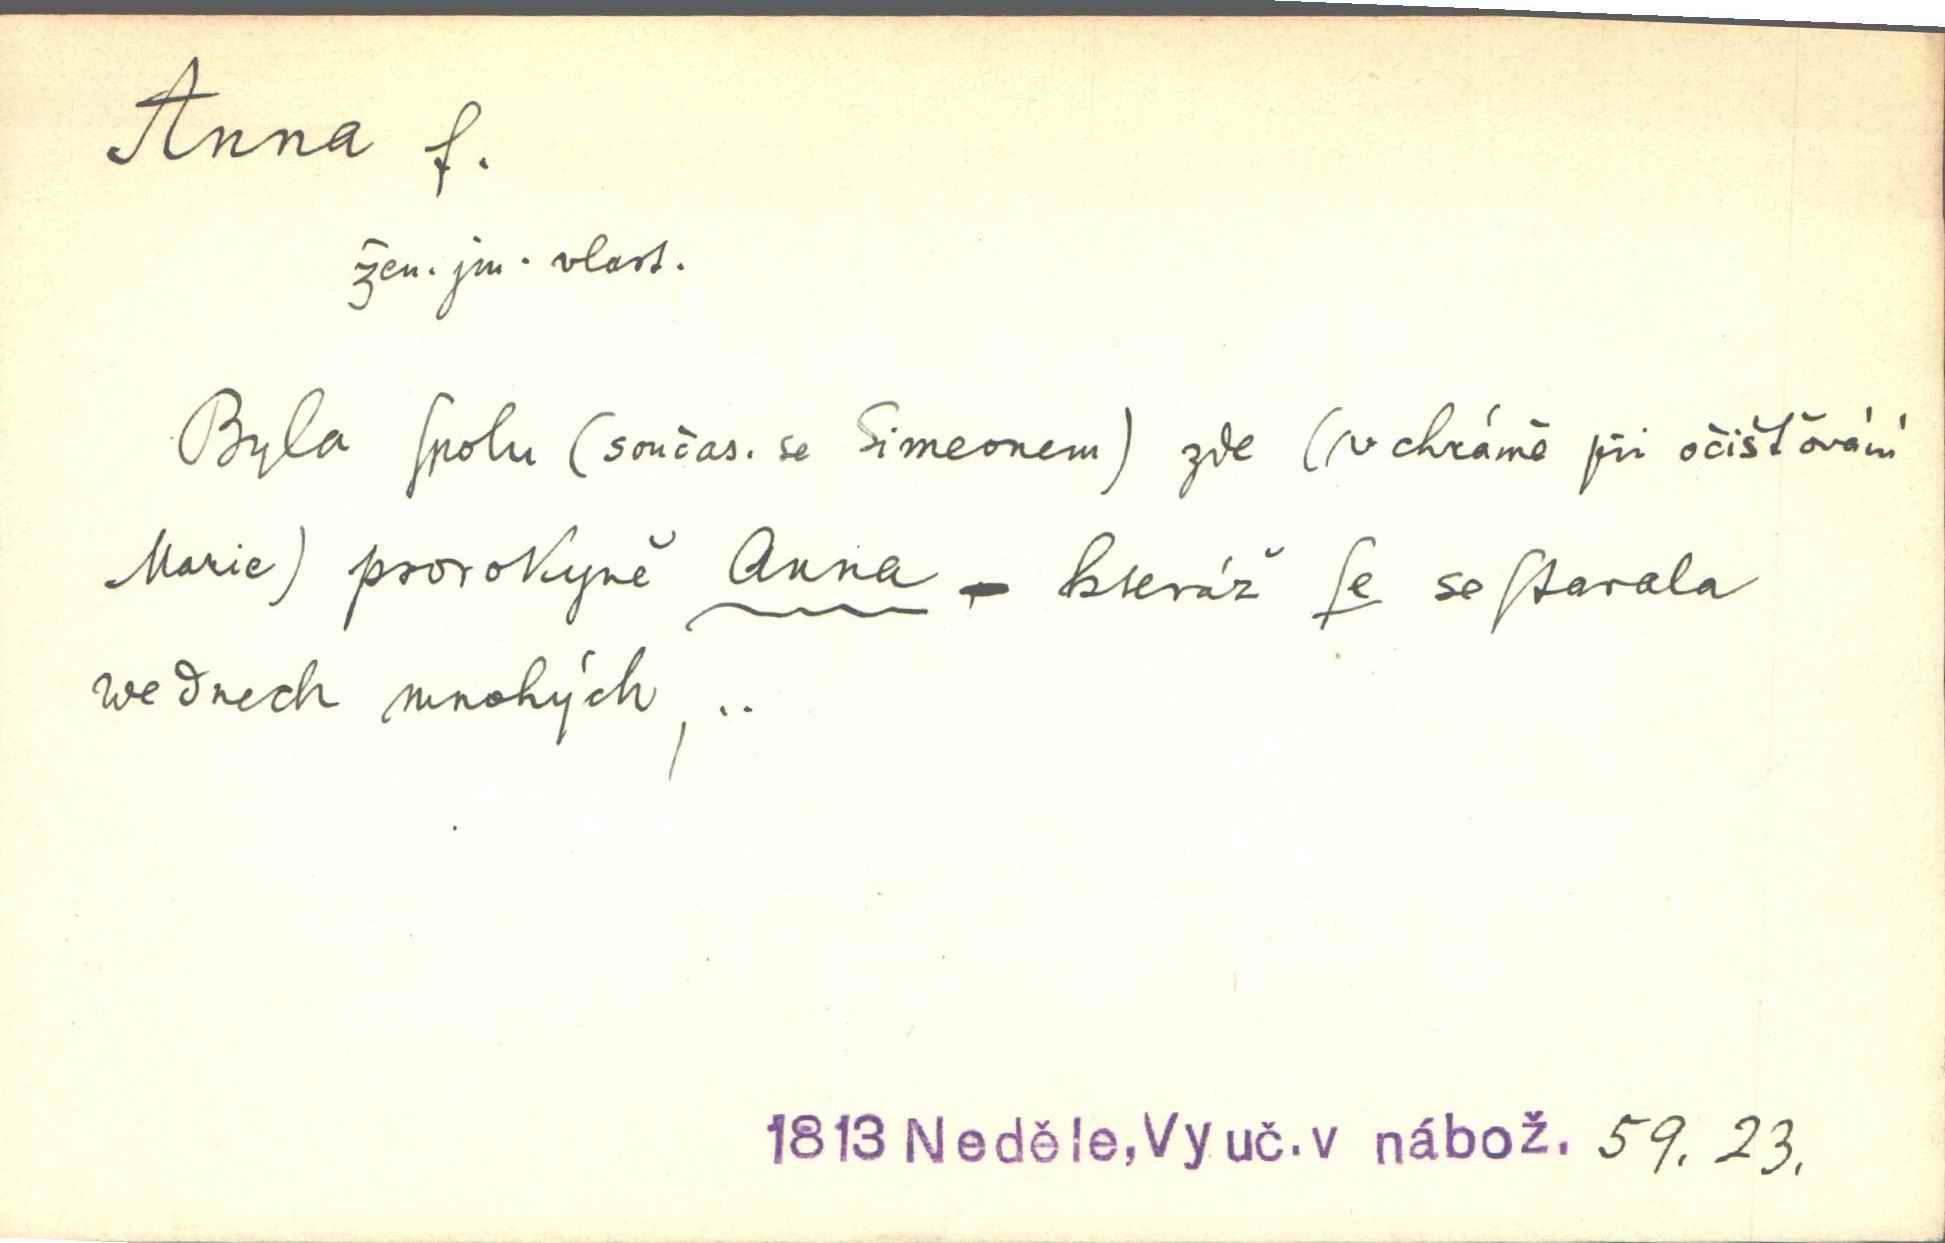 Anna f.
žen. jm. vlast.
Byla ſpolu (součas. se Simeonem) zde (v chrámě při očišťování
Marie) prorokyně Anna - kteráž ſe seſtarala
we dnech mnohých, ..
1813 Neděle, Vyuč. v nábož. 59. 23.